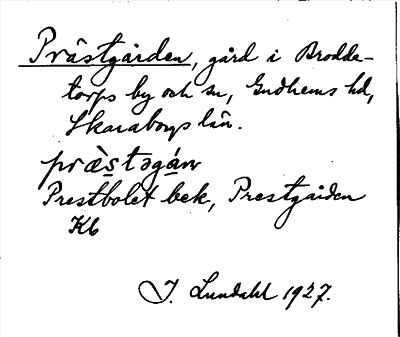 Prästgården, gård i Brodde-
torps by och sn, Gudhems hd,
Skaraborgs län.
præ̀stəgán
Prestbolet bek, Prestgården
Kb
I. Lundahl 1927.